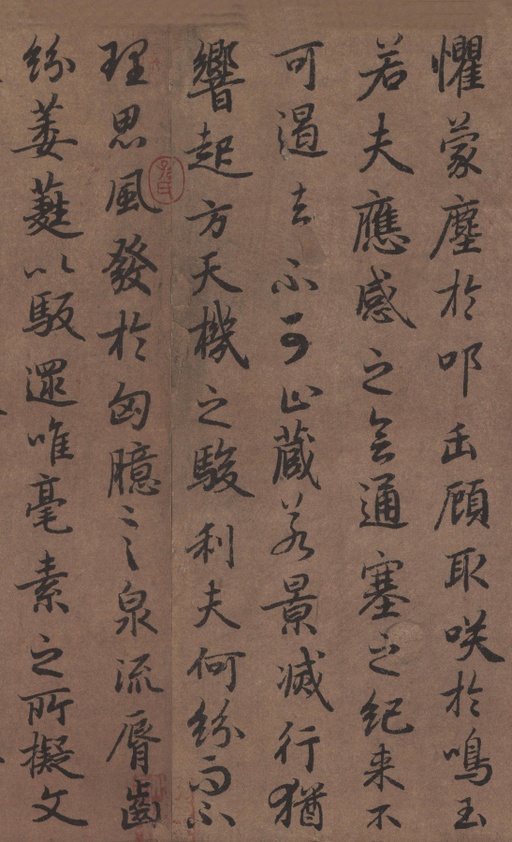 懼蒙塵於叩缶顧取咲於鳴玉
若夫應感之會通塞之紀来不
可遏去不可止藏若景滅行猶
響起方天機之駿利夫何紛而不
理思風發於匈臆言泉流脣齒
紛萎蕤以馺遝唯毫素之所擬文